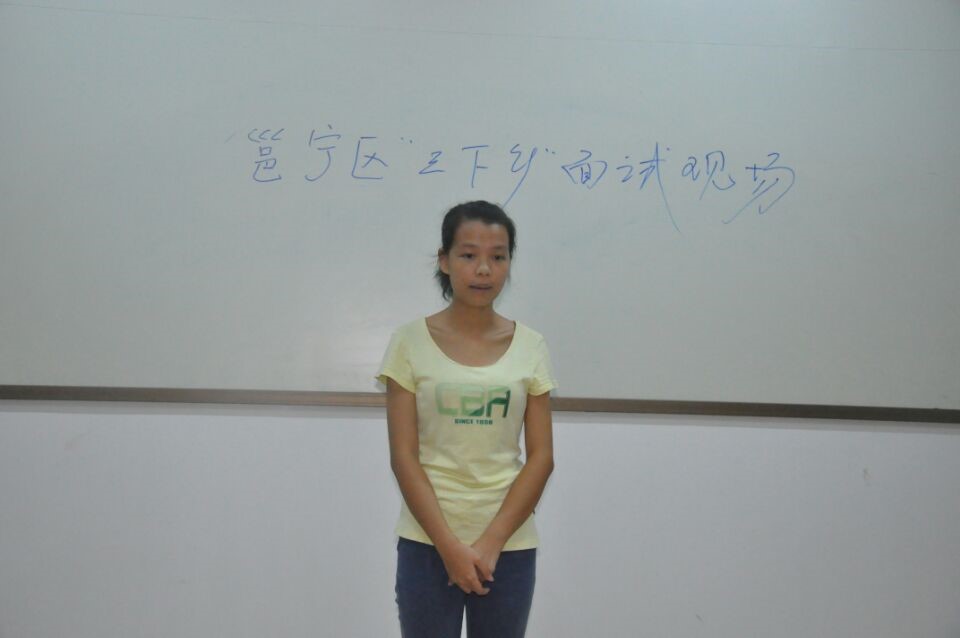 邕宁区"三下乡"面试现场
CBA
SINCE 1998